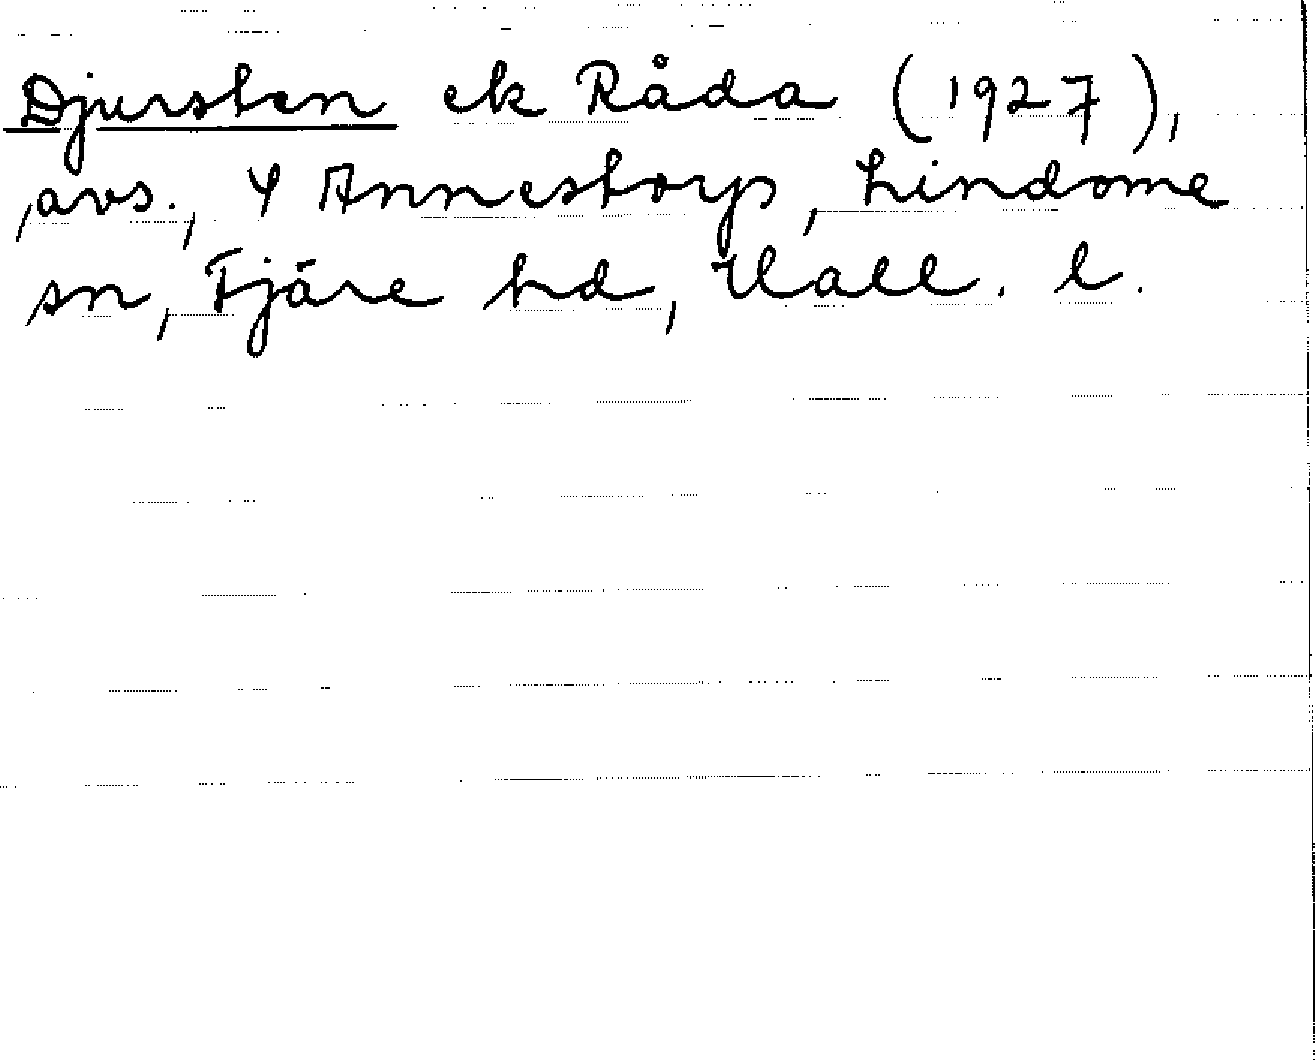 Djursten ek Råda (1927),
avs., Y Annestorp, Lindome
sn, Fjäre hd, Hall. l.